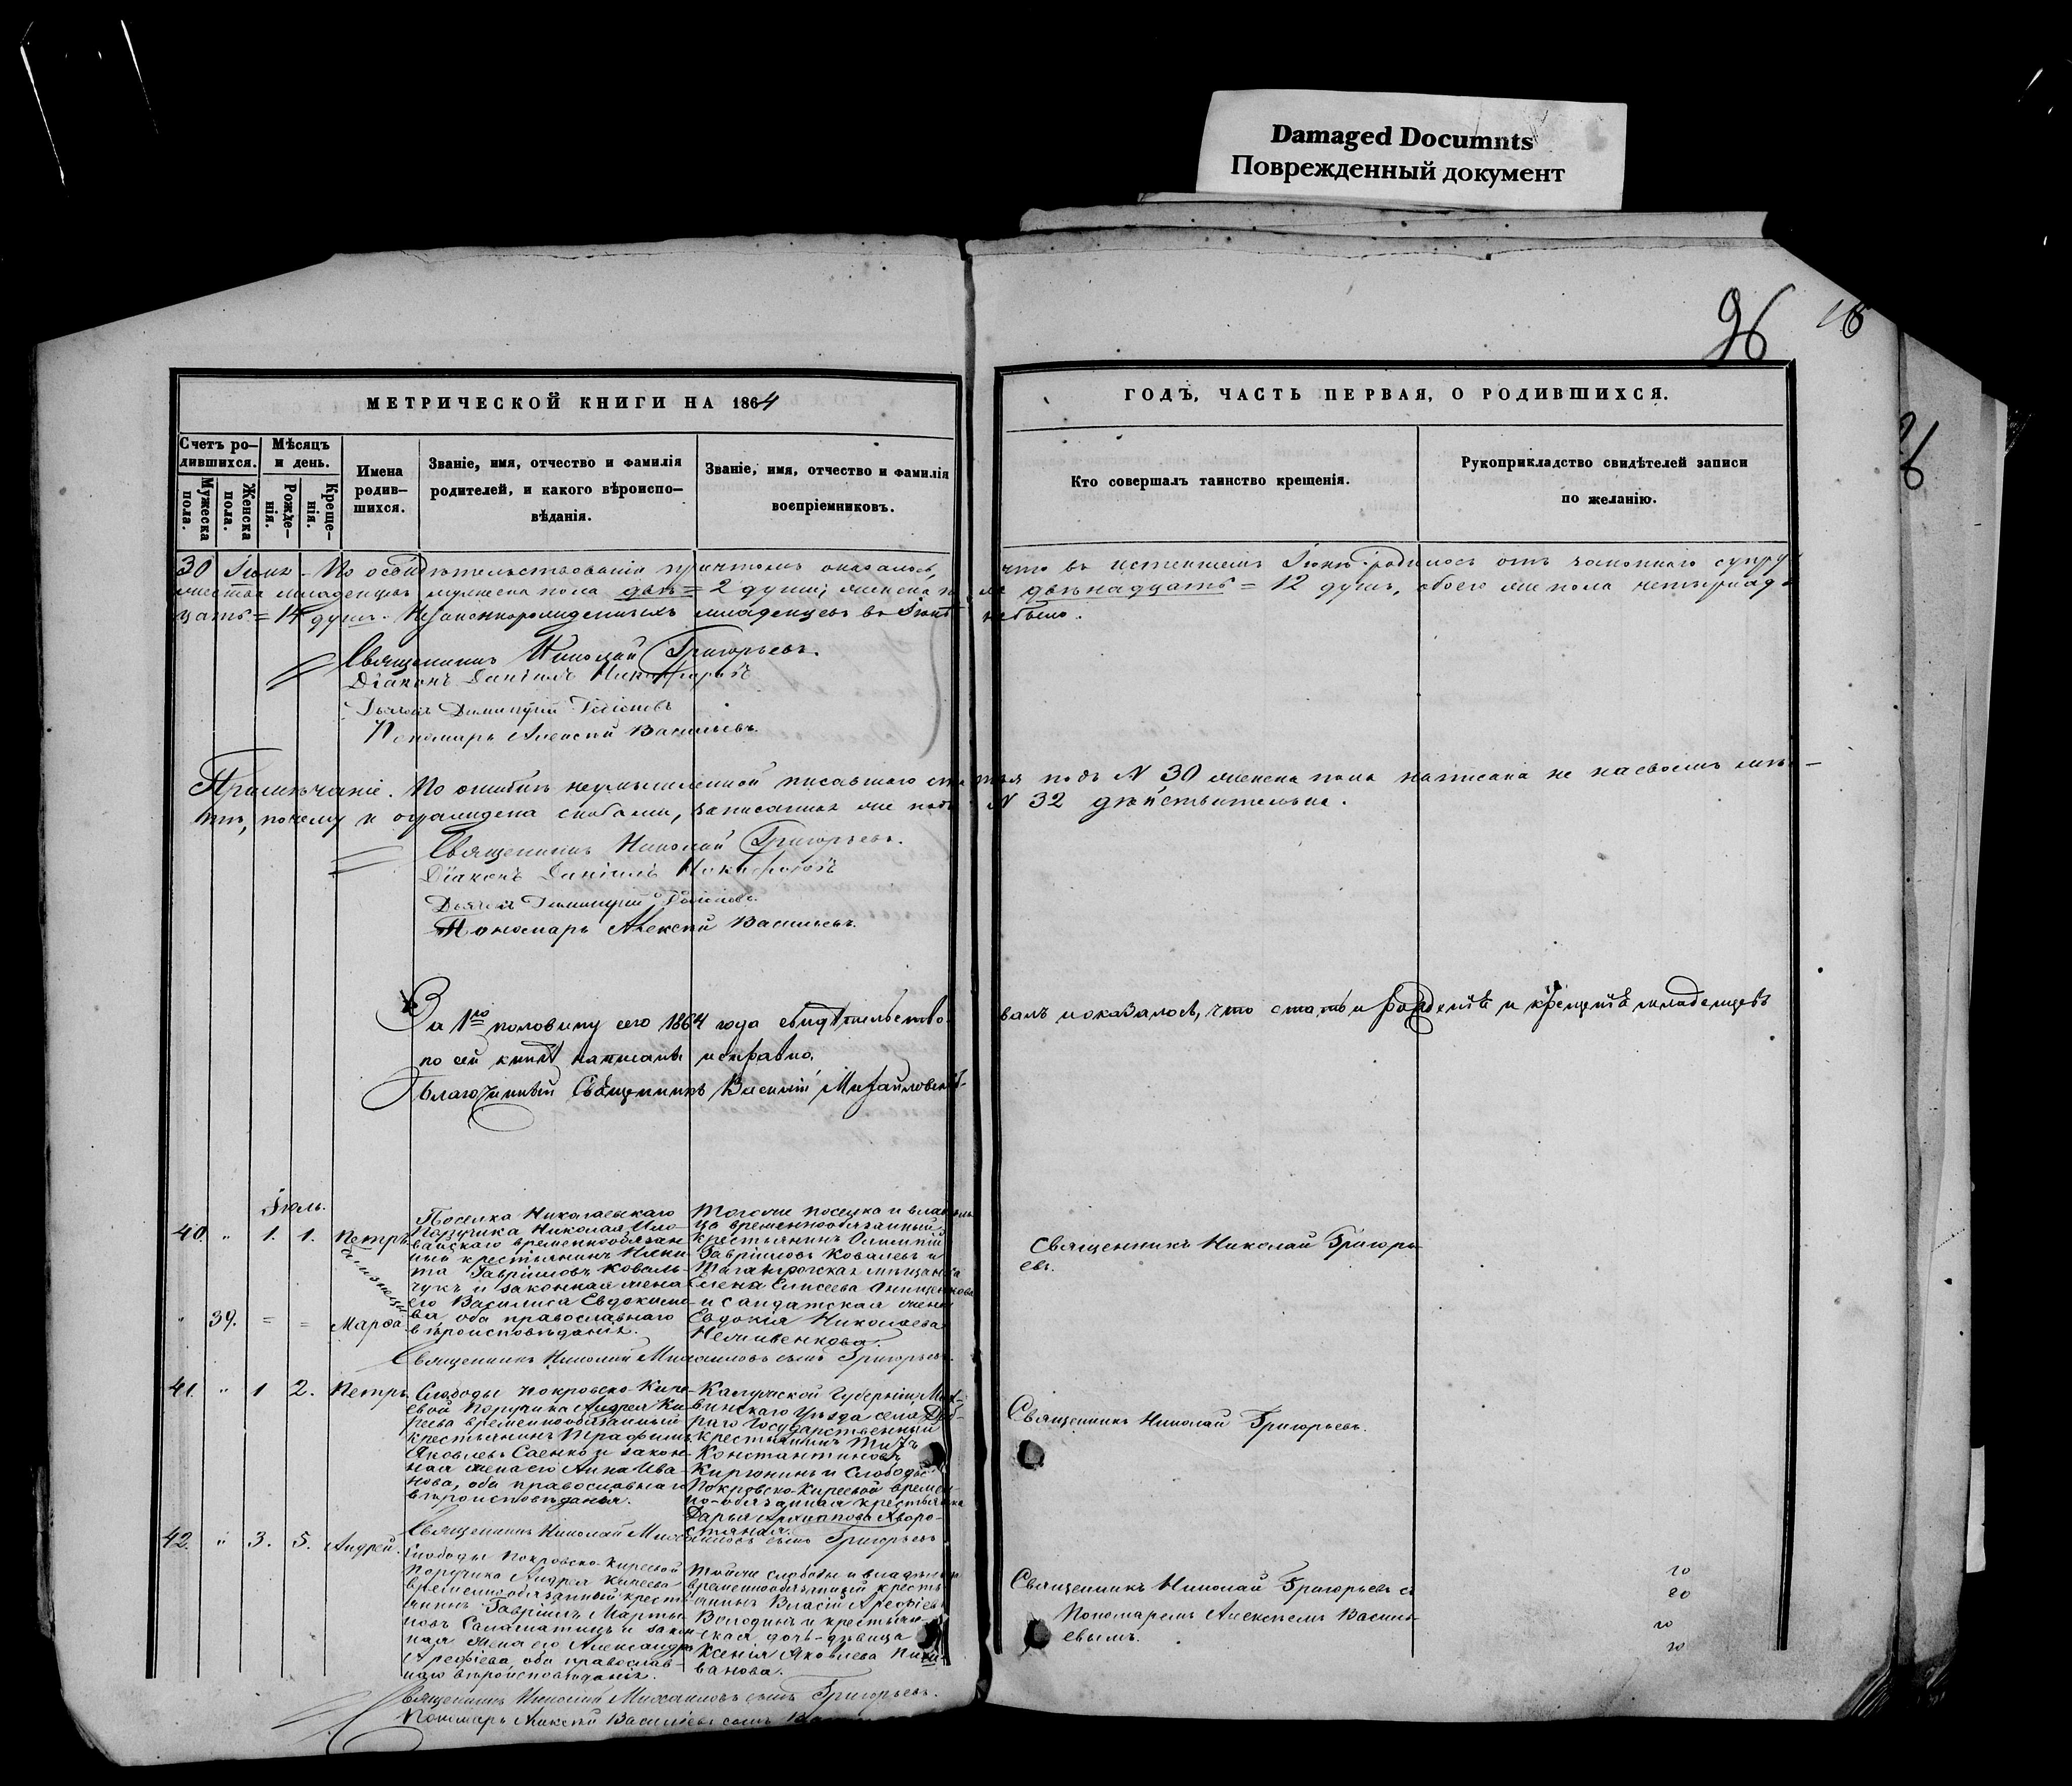 Damaged Documnts
Поврежденный документ
96
МЕТРИЧЕСКОЙ КНИГИ НА 1864
ГОДЪ, ЧАСТЬ ПЕРВАЯ, О РОДИВШИХСЯ.
Счетъ ро-
дившихся.
Мужеска
пола.
Женска
пола.
Мѣсяцъ
и день.
Рожде-
нія.
Креще-
нія.
Имена
родив-
шихся.
Званіе, имя, отчество и фамилія
родителей, и какого вѣроиспо-
вѣданія.
Званіе, имя, отчество и фамилія
воспріемниковъ.
Кто совершалъ таинство крещенія.
Рукоприкладство свидѣтелей записи
по желанію.
30 Іюня. По освидѣтельствованіи причтомъ оказалось, что въ истекшемъ Іюнѣ родилось отъ законнаго супру-
жества младенцевъ мужеска пола двѣ = 2 души, женска пола двѣнадцать = 12 душъ, обоего же пола четырнад-
цать = 14 душъ. Незаконнорожденныхъ младенцевъ въ Іюнѣ небыло.
Священникъ Николай Григорьевъ.
Діаконъ Даніилъ Никифоровъ
Дьячекъ Димитрій
Пономарь Алексѣй Васильевъ.
Примѣчаніе. По ошибкѣ неумышленной писавшаго статья подъ N 30 женска пола написана не на своемъ мѣс-
тѣ, почему и ограждена скобами, записанная же подъ N 32 дѣйствительна.
Священникъ Николай Григорьевъ.
Діаконъ Даніилъ Никифоровъ
Дьячекъ Димитрій
Пономарь Алексѣй Васильевъ.
За 1ю половину сего 1864 года свидѣтельство- валъ и оказалось, что статьи о рожденіи и крещеніи младенцевъ
по сей книгѣ написаны исправно.
Благочинный Священникъ Василій Михайловскій
Іюль.
40. " 1. 1. Петръ
близнецы
" 39. = = Марѳа
Поселка Николаевскаго
Поручика Николая Ило-
вайскаго временнообязан-
ный крестьянинъ Ники-
та Гавріиловъ Коваль-
чукъ и законная жена
его Василиса Евдокимо-
ва, оба православнаго
вѣроисповѣданія.
Тогоже поселка и владѣль-
ца временнообязанный
крестьянинъ Олимпій
Гавріиловъ Ковалевъ и
Таганрогская мѣщанка
Елена Елисеева Онищенкова
и солдатская жена
Евдокія Николаева
Священникъ Николай Григорь-
евъ.
Священникъ Николай Михаиловъ сынъ Григорьевъ.
41. " 1 2. Петръ
Слободы Покровско-Кире-
евой Поручика Андрея Ки-
реева временнообязанный
крестьянинъ Трофимъ
Яковлевъ Саенко и закон-
ная жена его Анна Ива-
нова, оба православнаго
вѣроисповѣданія.
Калужской Губерніи, Мос-
винскаго Уѣзда села
Государственный
крестьянинъ Титъ
Константиновъ
Кирюнинъ и Слободы
Покровско-Киреевой времен-
но-обязанная крестьянка
Дарья Архипова Хворо-
стяная.
Священникъ Николай Григорьевъ.
Священникъ Николай Михаиловъ сынъ Григорьевъ
42. " 3. 5. Андрей.
Слободы Покровско-Киреевой
Поручика Андрея Киреева
временнообязанный кресть-
янинъ Гавріилъ Марты-
новъ Саламатинъ и закон-
ная жена его Александра
Арефьева, оба православ-
наго вѣроисповѣданія.
Тойже слободы и владѣльца
временнообязанный кресть-
янинъ Власій Арефіевъ
Володинъ и крестьян-
ская дочь-дѣвица
Ксенія Яковлева
Священникъ Николай Григорьевъ съ
Пономаремъ Алексѣемъ Василь-
евымъ.
Священникъ Николай Михаиловъ сынъ Григорьевъ.
Пономарь Алексѣй Васильевъ сынъ